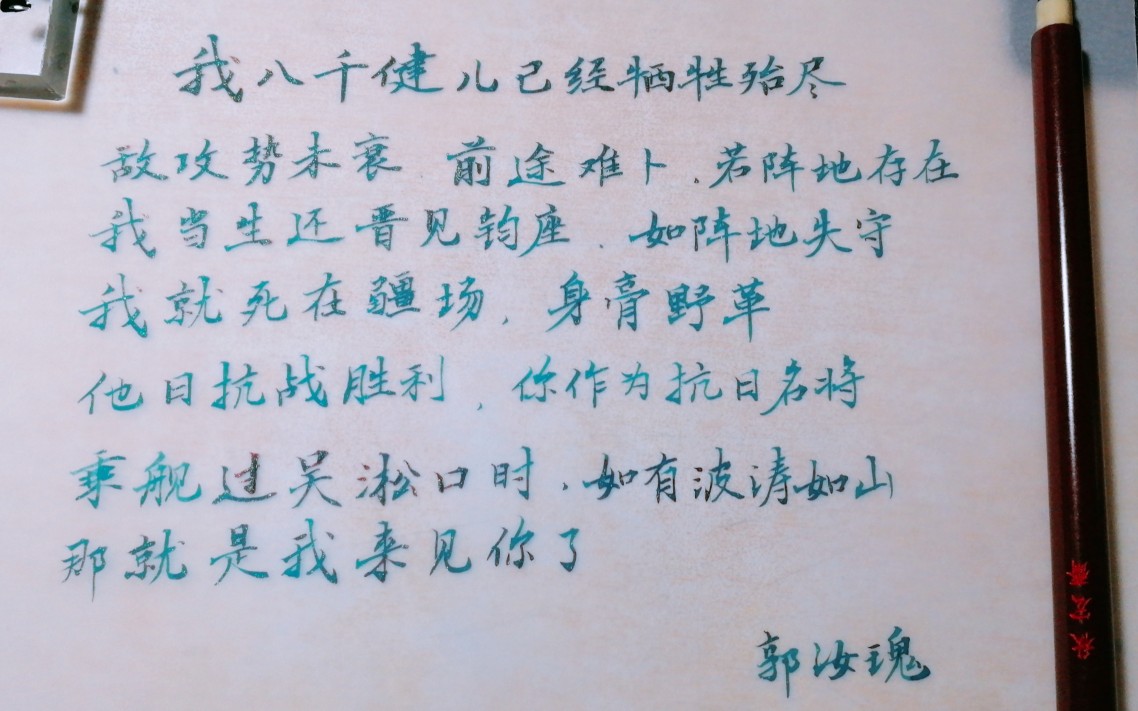 我八千健儿已经牺牲殆尽
敌攻势未衰 前途难卜.若阵地存在
我当生还晋见钧座.如阵地失守
我就死在疆场,身膏野革
他日抗战胜利,你作为抗日名将
乘舰过吴淞口时.如有波涛如山
那就是我来见你了
郭汝瑰